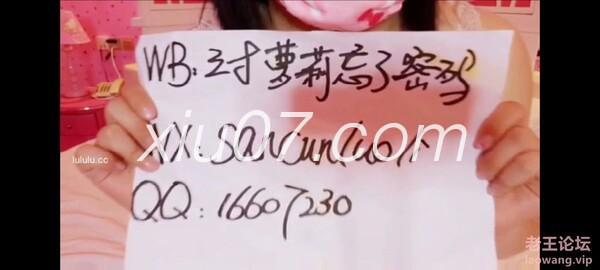 WB:三寸萝莉忘了密码
VX:
xiu07.com
lululu.cc
QQ:16607230
老王论坛
laowang.vip